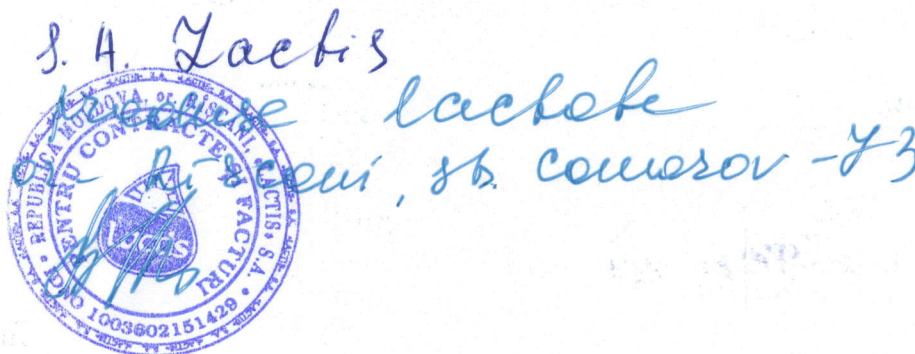 S.A. Lactis
produse lactate
or. Rîșcani, st. Comarov - 73
REPUBLICA MOLDOVA, or. RÎȘCANI, LACTIS, S.A.
PENTRU CONTRACTE ȘI FACTURI
IDNO 1003602151429